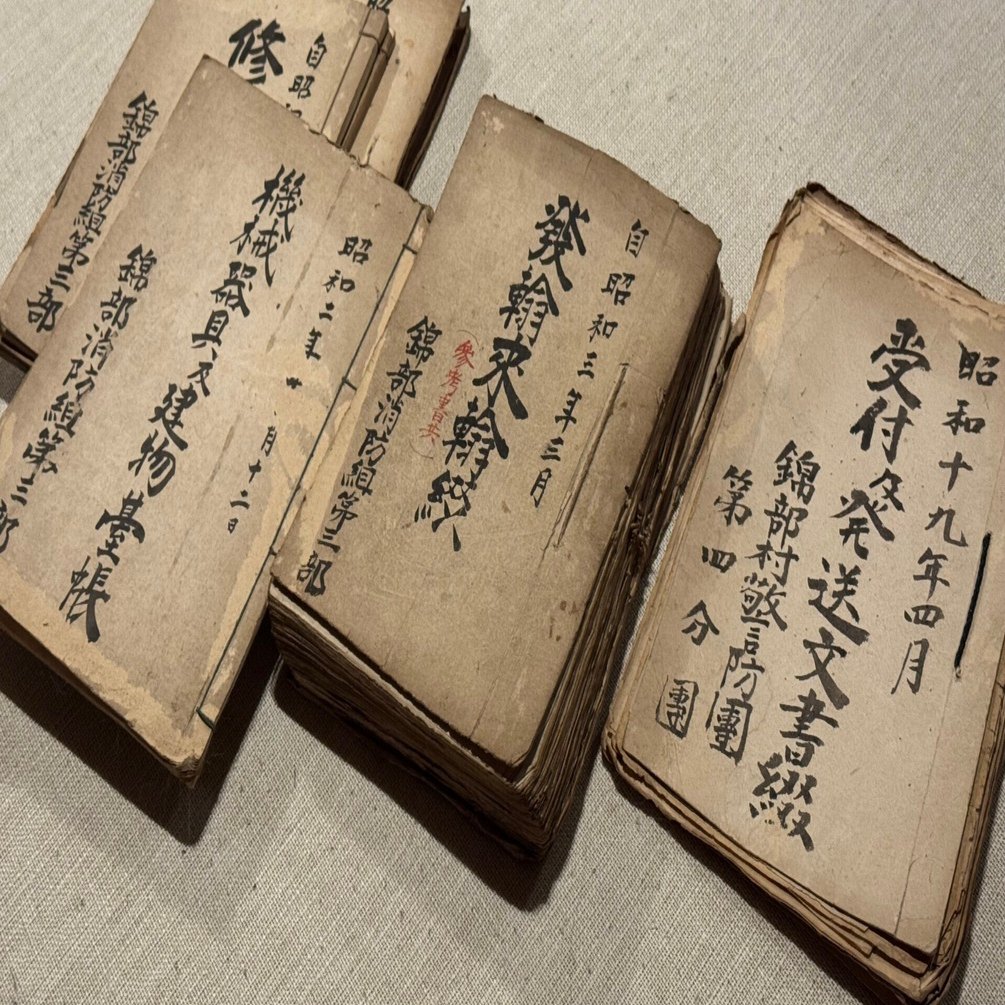 昭和十九年四月
受付及発送文書綴
錦部村警防團
第四分團
自昭和三年三月
發翰来翰綴
(參考書共)
錦部消防組第三部
昭和二年 月十二日
機械器具及建物臺帳
錦部消防組第三部
昭
自昭
修
錦部消防組第三部